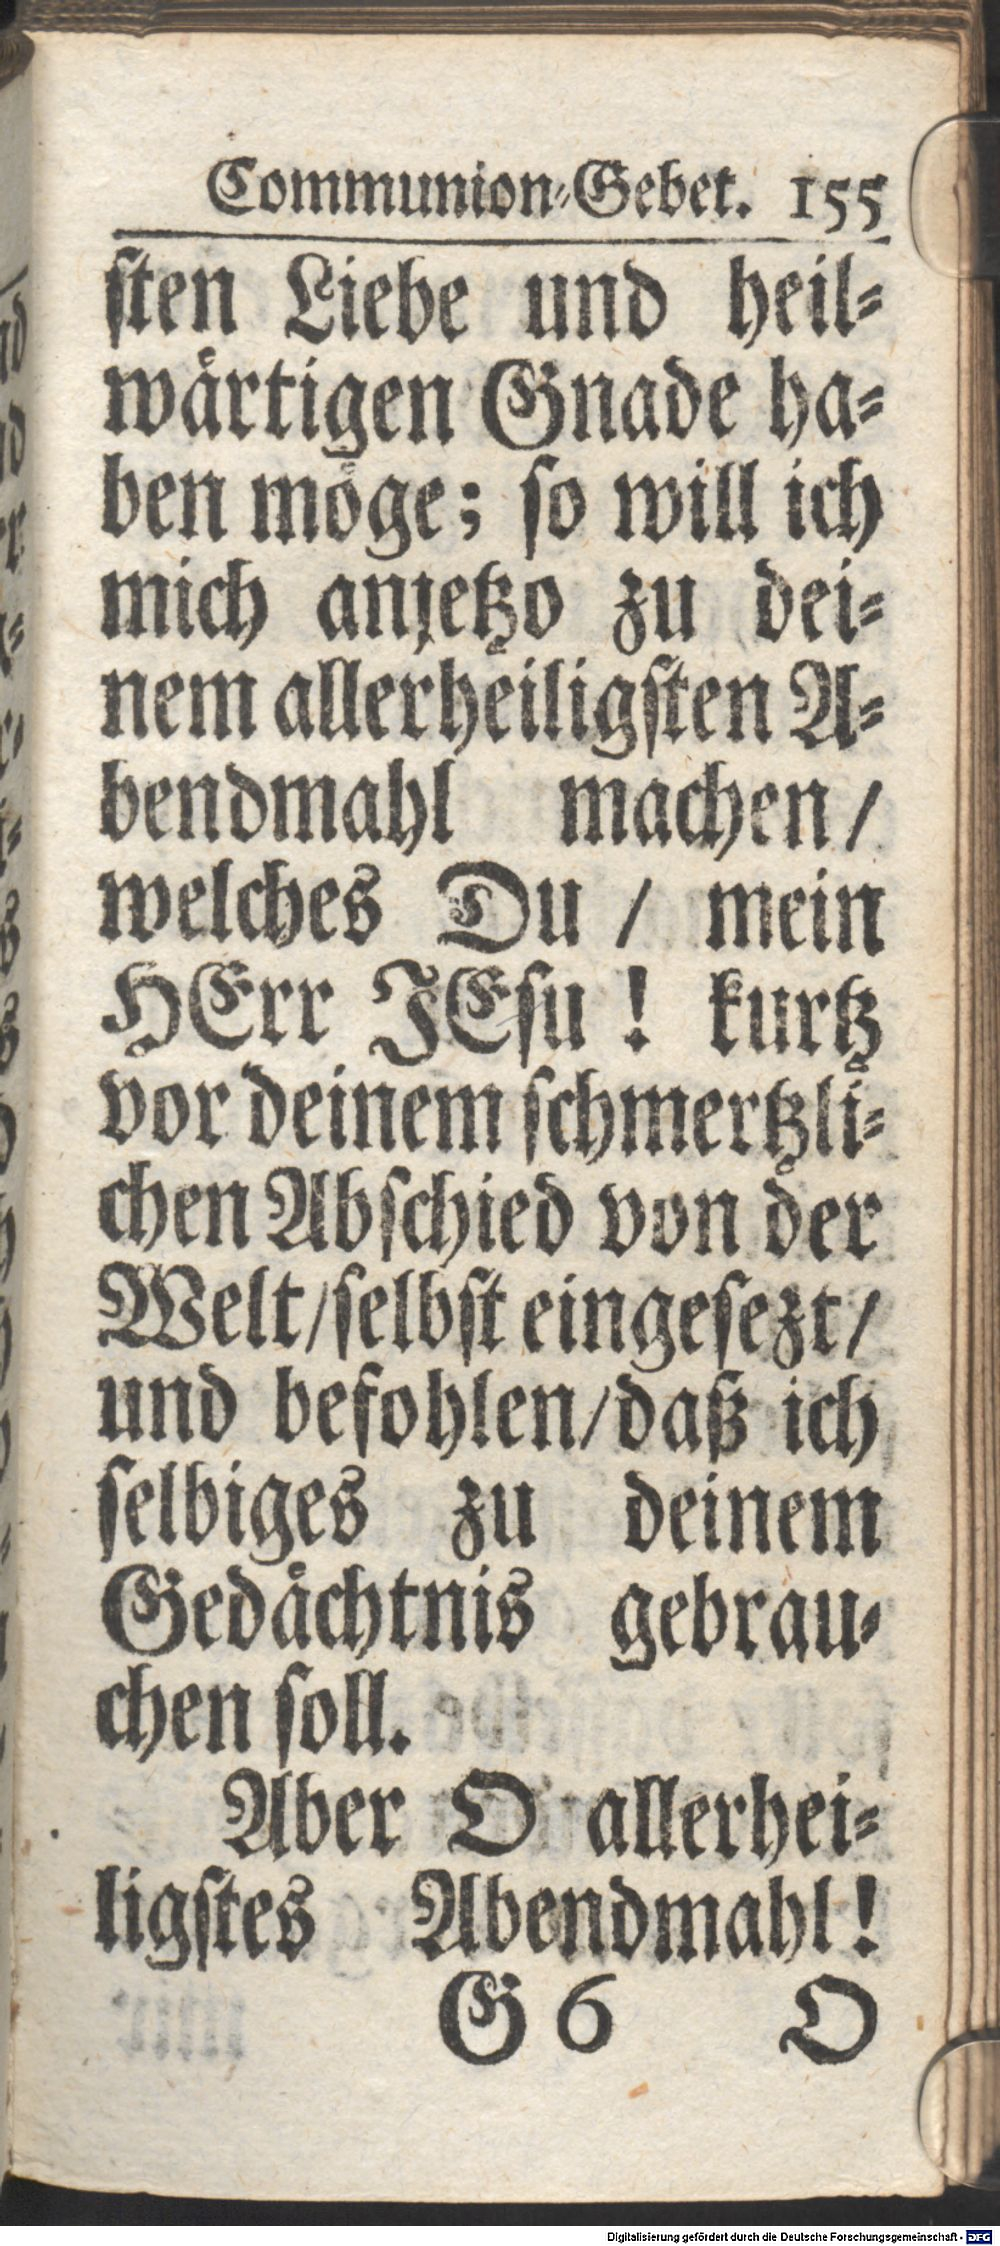 Communion-Gebet. 155
sten Liebe und heil-
wärtigen Gnade ha-
ben möge; so will ich
mich anjetzo zu dei-
nem allerheiligsten A-
bendmahl machen/
welches Du / mein
HErr JEsu ! kurtz
vor deinem schmertzli-
chen Abschied von der
Welt/selbst eingesezt/
und befohlen/daß ich
selbiges zu deinem
Gedächtnis gebrau-
chen soll.
Aber O allerhei-
ligstes Abendmahl!
G 6 O
Digitalisierung gefördert durch die Deutsche Forschungsgemeinschaft - DFG